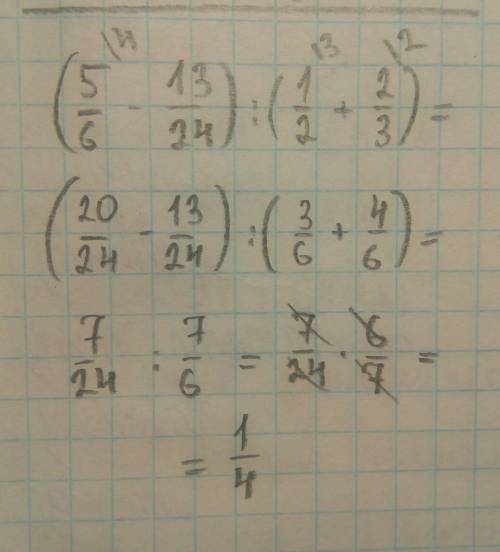 (5/6 \4 - 13/24) : (1/2 \3 + 2/3 \2) =
(20/24 - 13/24) : (3/6 + 4/6) =
7/24 : 7/6 = 7/24 · 6/7 =
= 1/4